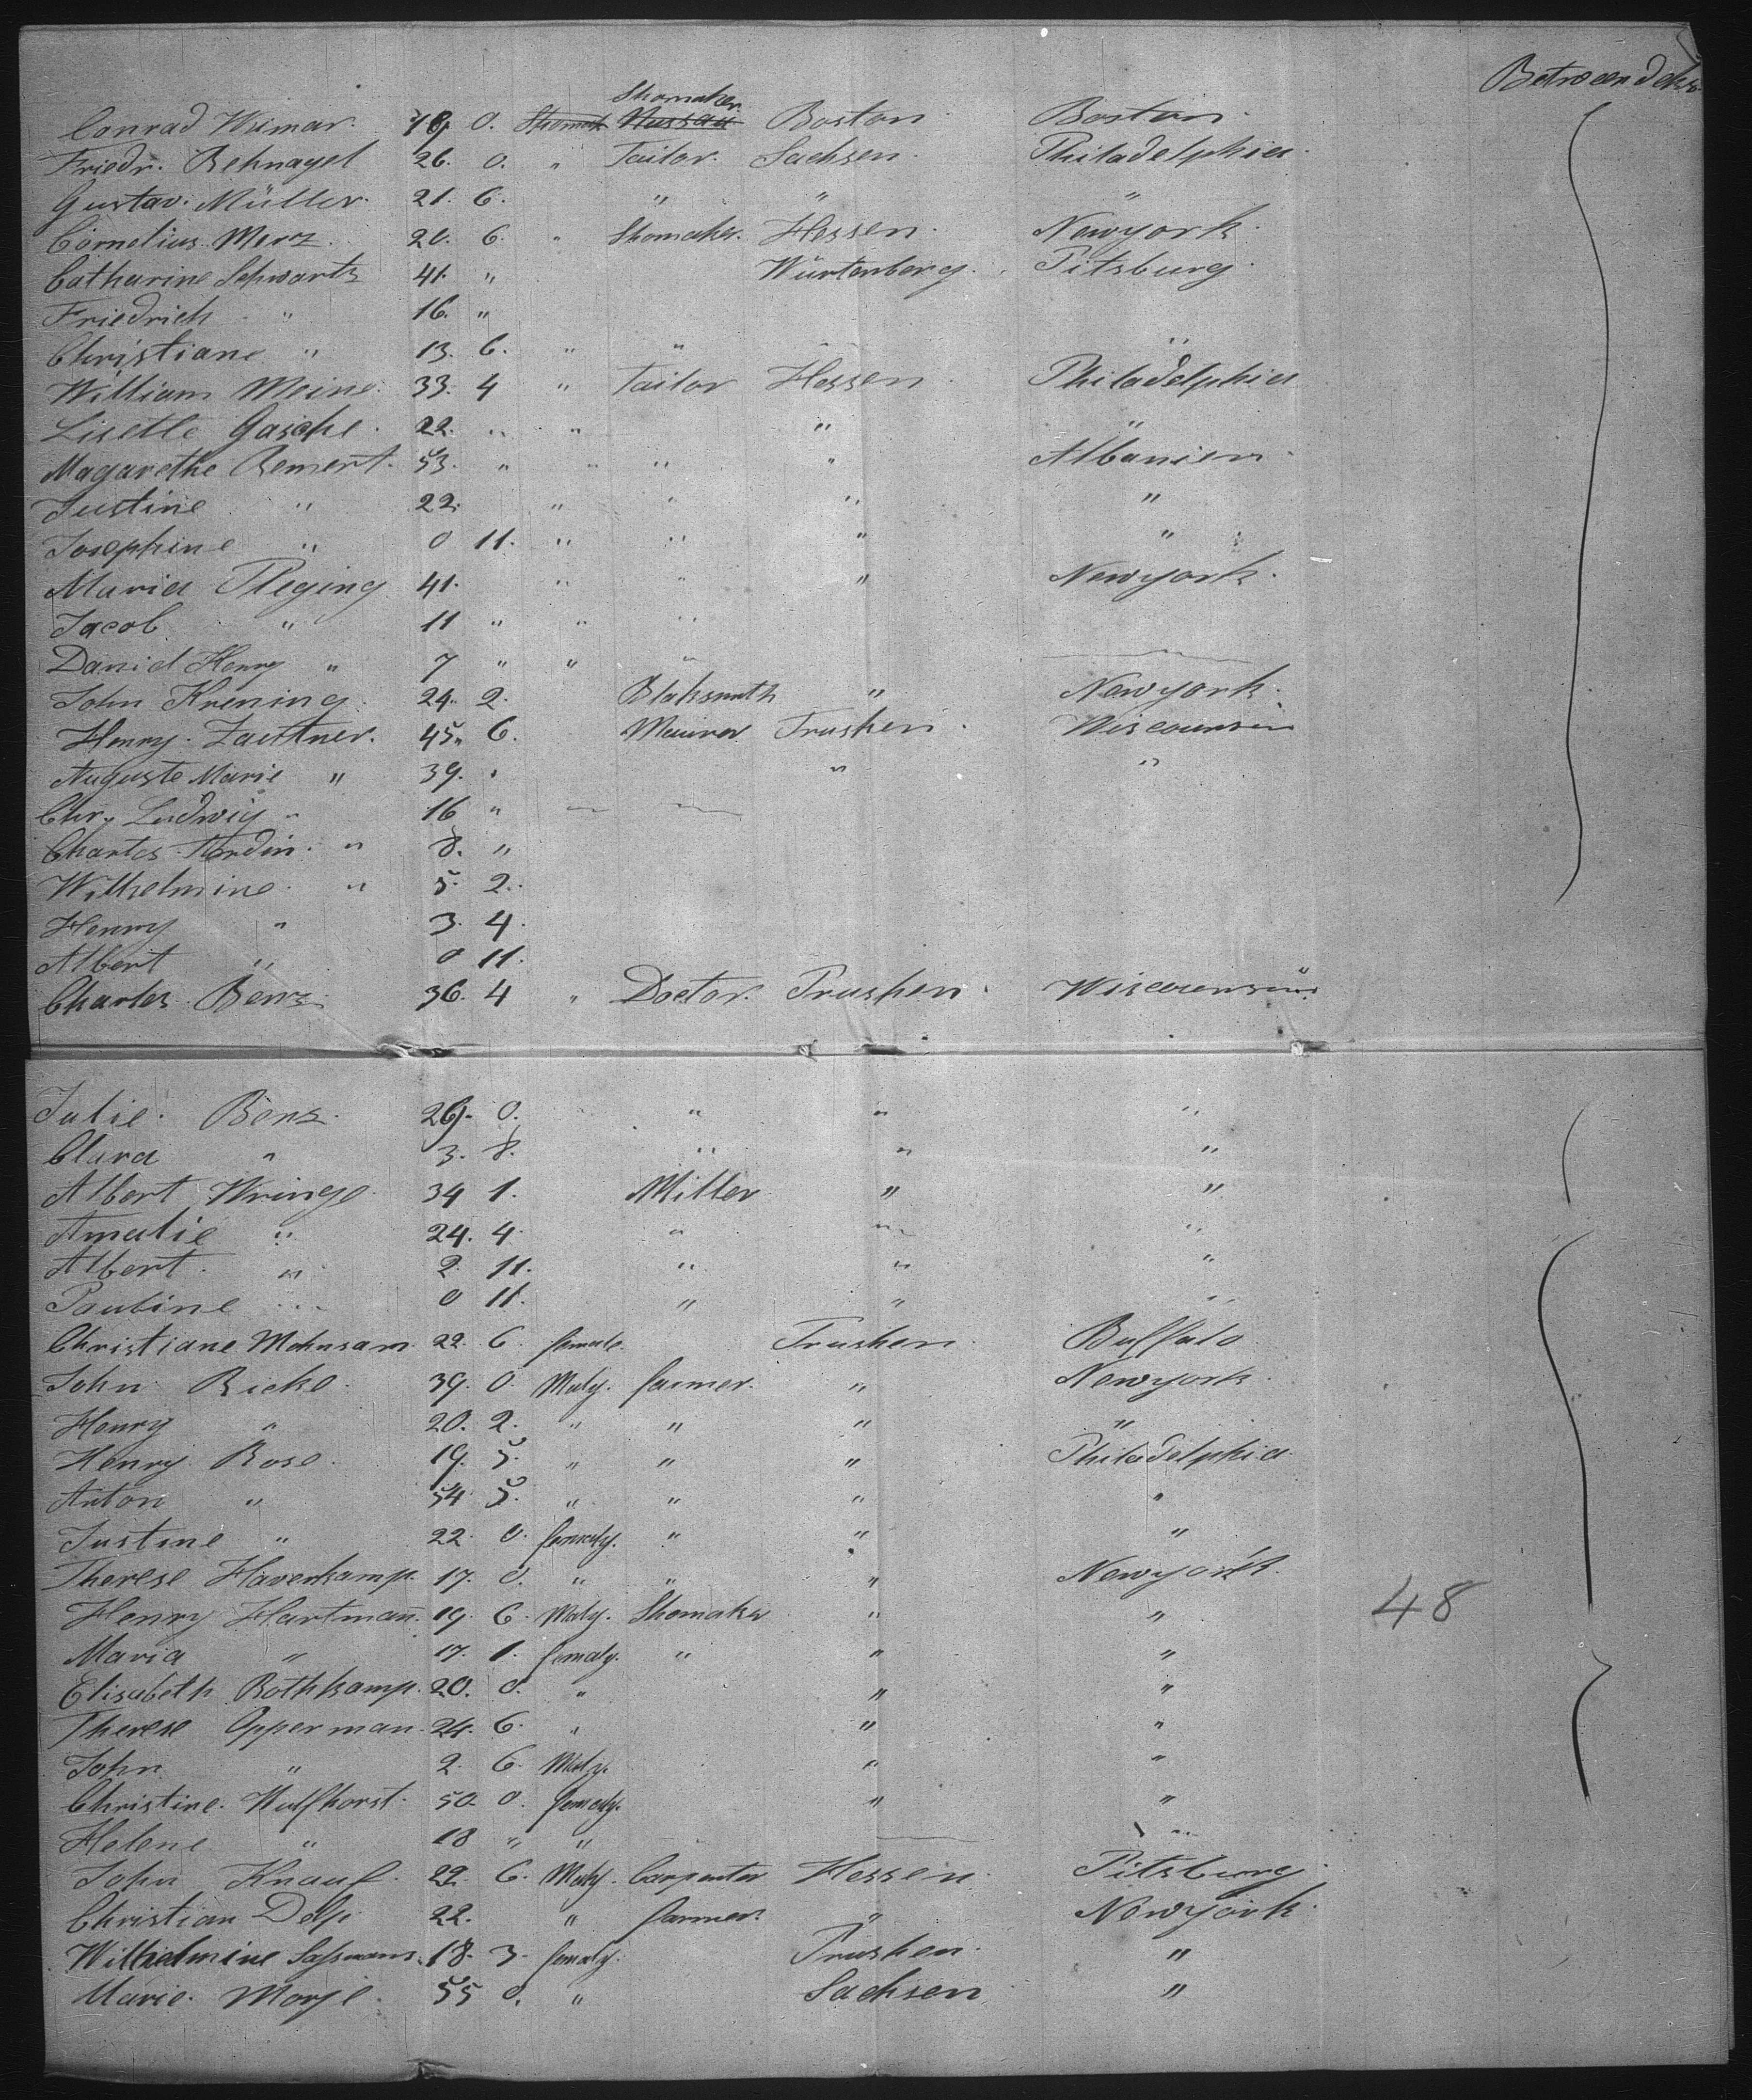 Between decks
Shomaker
Conrad Weimar. 19. 0. Shomak Nassau Boston Boston.
Friedr. Behnagel 26. 0. " Tailor. Sachsen. Philadelphia.
Gustav. Müller. 21. 6. " " "
Cornelius Merz. 20. 6. " Shomaker. Hessen. Newyork.
Catharine Schwartz 41. " Würtenberg. Pitsburg.
Friedrich " 16. "
Christiane " 13. 6. " " "
William Meine. 33. 4 " Tailor Hessen. Philadelphia
Lisette Gasche. 22. " " " "
Magarethe Bemert. 53. " " " " Albanien.
Justine " 22. " " " "
Josephine " 0 11. " " " "
Maria Pleging 41. " " " Newyork.
Jacob " 11 " " "
Daniel Henry " 7 " " "
John Krening. 24. 2. Blaksmith " Newyork.
Henry. Zattner. 45. 6. Maurer Prushen. Wiscounsin
Auguste Marie " 39. " " "
Chr. Ludwig " 16 "
Charles Ferdin. " 8. "
Wilhelmine. " 5. 2.
Henry " 3. 4.
Albert " 0 11.
Charles Benz. 36. 4 " Doctor. Prushen. Wiscounsin.
Julie. Benz. 29. 0. " " "
Clara " 3. 8. " " "
Albert Wringe. 34 1. Miller " "
Amalie " 24. 4. " " "
Albert. " 2. 11. " " "
Pauline " 0 11. " " "
Christiane Mohnsam. 22. 6. female. Prushen. Buffalo
John Ricke. 39. 0. Maly. farmer. " Newyork.
Henry " 20. 2. " " " "
Henry Rose. 19. 5. " " " Philadelphia.
Anton " 54 5. " " " "
Justine " 22. 0. femaly. " " "
Therese Haverkamp. 17. 0. " " " Newyork.
Henry Hartmañ. 19. 6. Maly. Shomaker " " 48
Maria " 17. 1. femaly. " " "
Elisabeth Rothkamp. 20. 0. " " "
Therese Opperman. 24. 6. " " "
John " 2. 6. Maly. " "
Christine. Wulfhorst. 50. 0. femaly. " "
Helene " 18 " " "
John Knauf. 22. 6. Maly. Carpenter Hessen. Pitsburg.
Christian Delp. 22. " farmer. " Newyork.
Wilhelmine 18. 3. femaly. Prushen. "
Marie. Morje. 55 0. " Sachsen. "